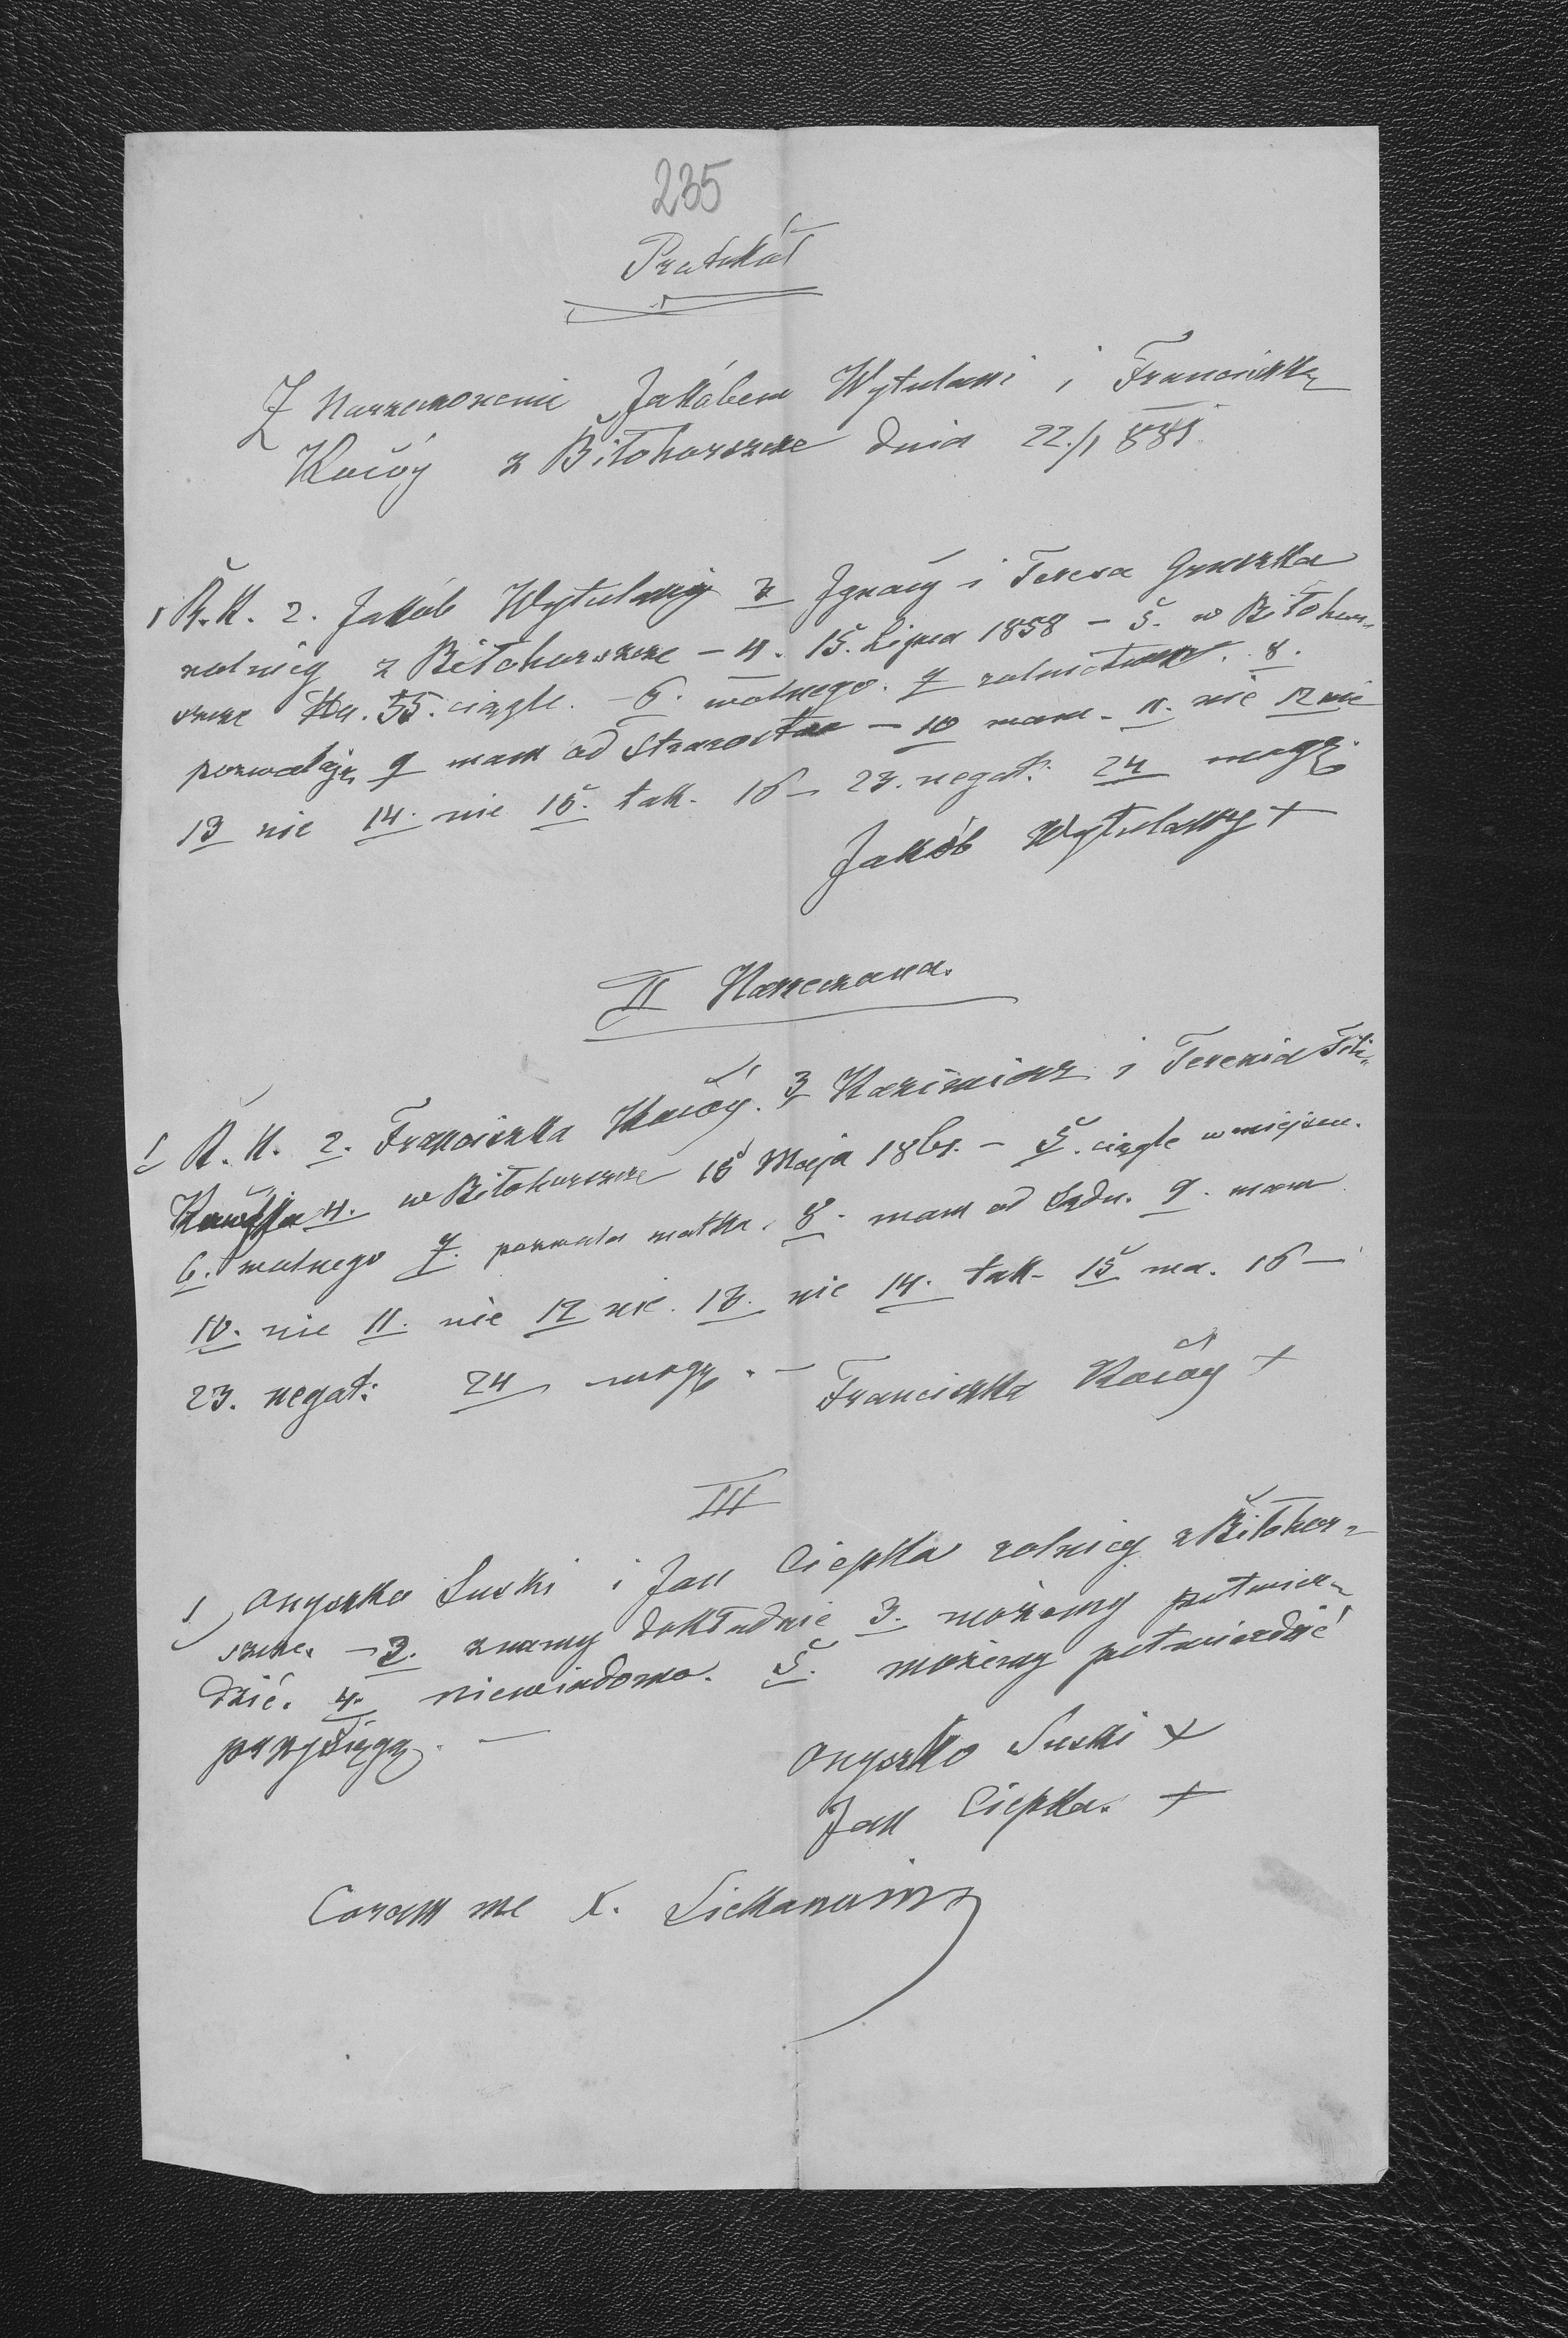 235
Protokół
Z Narzeczonemi Jakóbem Wytulani i Franciszką
Kacóy z Biłohorszcze dnia 22./1 881
1 R.K. 2. Jakób Wytulany 3 Ignacy i Teresa Gruszka
rolnicy z Biłohorszcze – 4. 15. Lipca 1858 – 5. w Biłohor„
szcze Nr. 55. ciągle. – 6. wolnego. 7 rolnictwem. 8.
pozwalają 9 mam od Starostwa – 10 mam. 11. nie 12 nie
13 nie 14. nie 15. tak. 16 – 23. negat: 24 mogę.
Jakób Wytulany +
II Narzeczona.
1 R. K. 2. Franciszka Kacóy. 3 Kazimierz i Terenia
4. w Biłohorszcze 15 Maja 1861. – 5. ciągle w miejscu.
6. wolnego 7. pozwala matka. 8. mam od Sądu. 9. mam
10. nie 11. nie 12 nie. 13. nie 14. tak – 15 ma. 16 –
23. negat: 24 mogę. – Franciszka Kacóy +
III
1 Onyszko Suski i Jan Ciepka rolnicy z Biłohor„
szcze. – 2. znamy dokładnie 3. możemy potwier„
dzić. 4. niewiadomo. 5. możemy potwierdzić
przysięgą. –
Onyszko Suski +
Jan Ciepka. +
Coram me X.